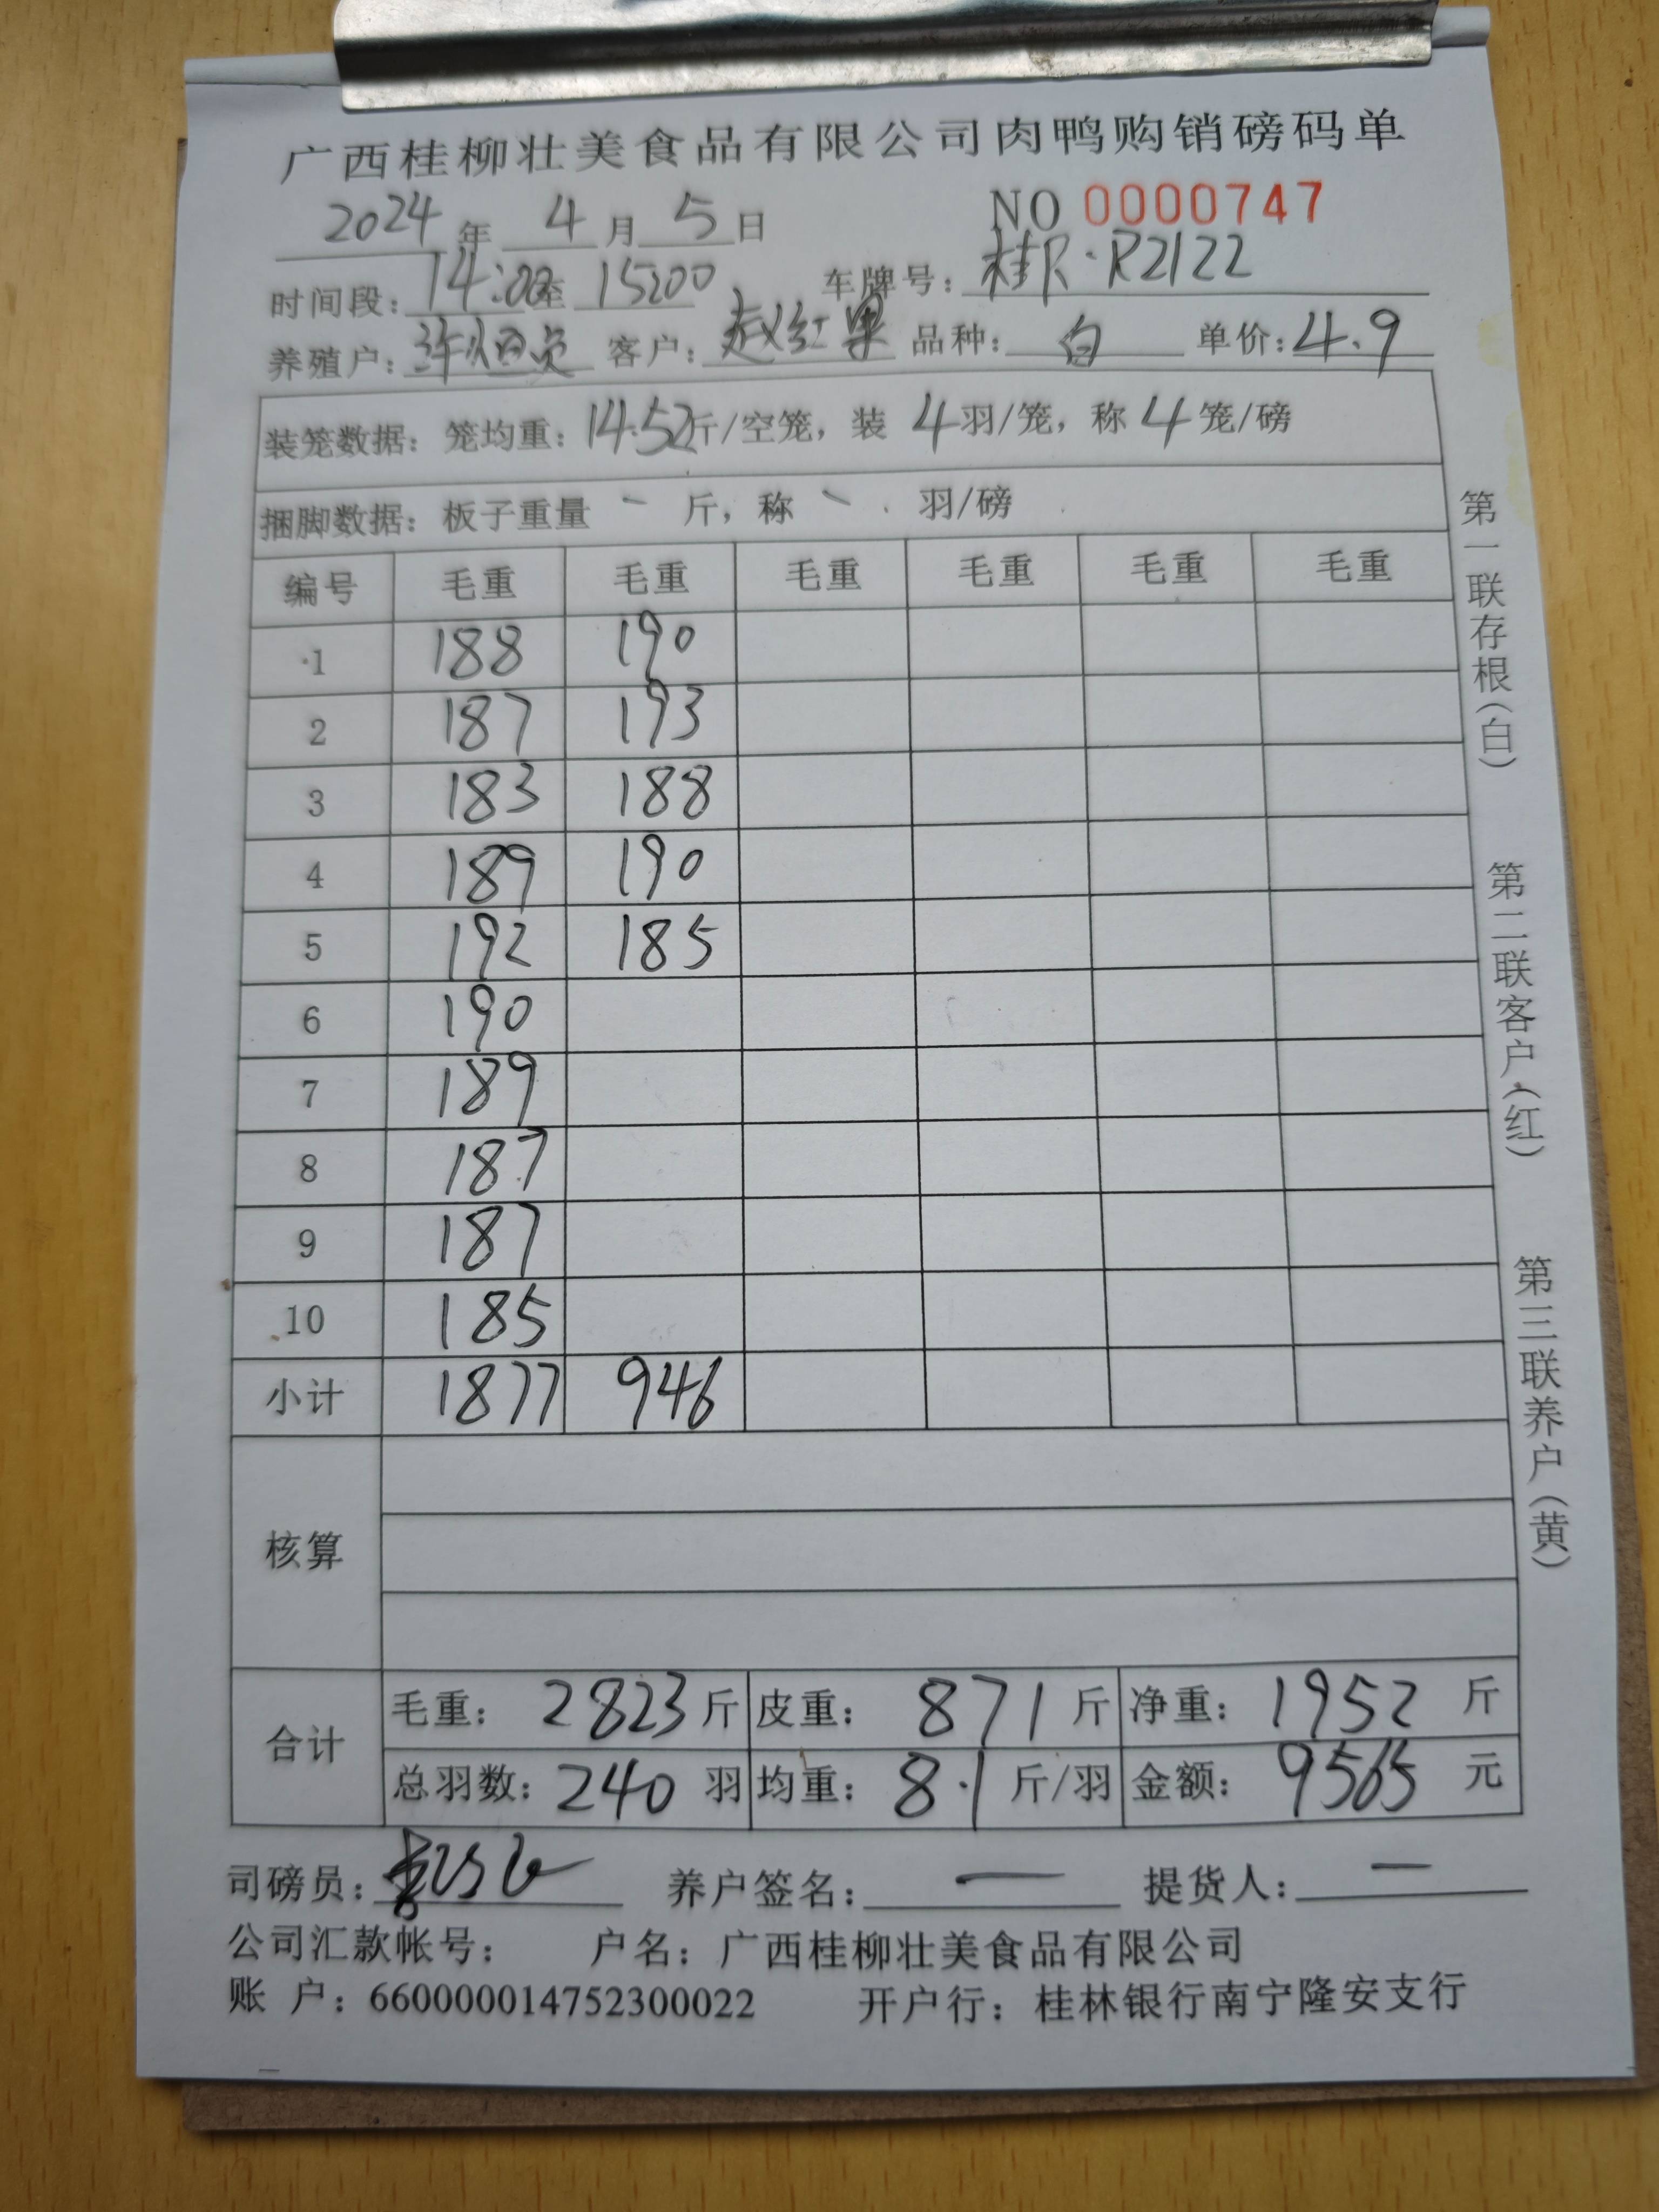 广西桂柳壮美食品有限公司肉鸭购销磅码单
2024年 4月 5日 NO 0000747
时间段: 14:00至 15:00 车牌号: 桂R·R2122
养殖户: 客户: 赵红果 品种: 白 单价: 4.9
装笼数据: 笼均重: 14.52斤/空笼, 装 4羽/笼, 称 4笼/磅
捆脚数据: 板子重量 - 斤, 称 - 羽/磅
编号 毛重 毛重 毛重 毛重 毛重 毛重
1 188 190
2 187 193
3 183 188
4 189 190
5 192 185
6 190
7 189
8 187
9 187
10 185
小计 1877 946
核算
合计 毛重: 2823斤 皮重: 871斤 净重: 1952斤
总羽数: 240羽 均重: 8.1斤/羽 金额: 9565元
司磅员: 养户签名: — 提货人: —
公司汇款帐号: 户名: 广西桂柳壮美食品有限公司
账 户: 660000014752300022 开户行: 桂林银行南宁隆安支行
第一联存根(白) 第二联客户(红) 第三联养户(黄)